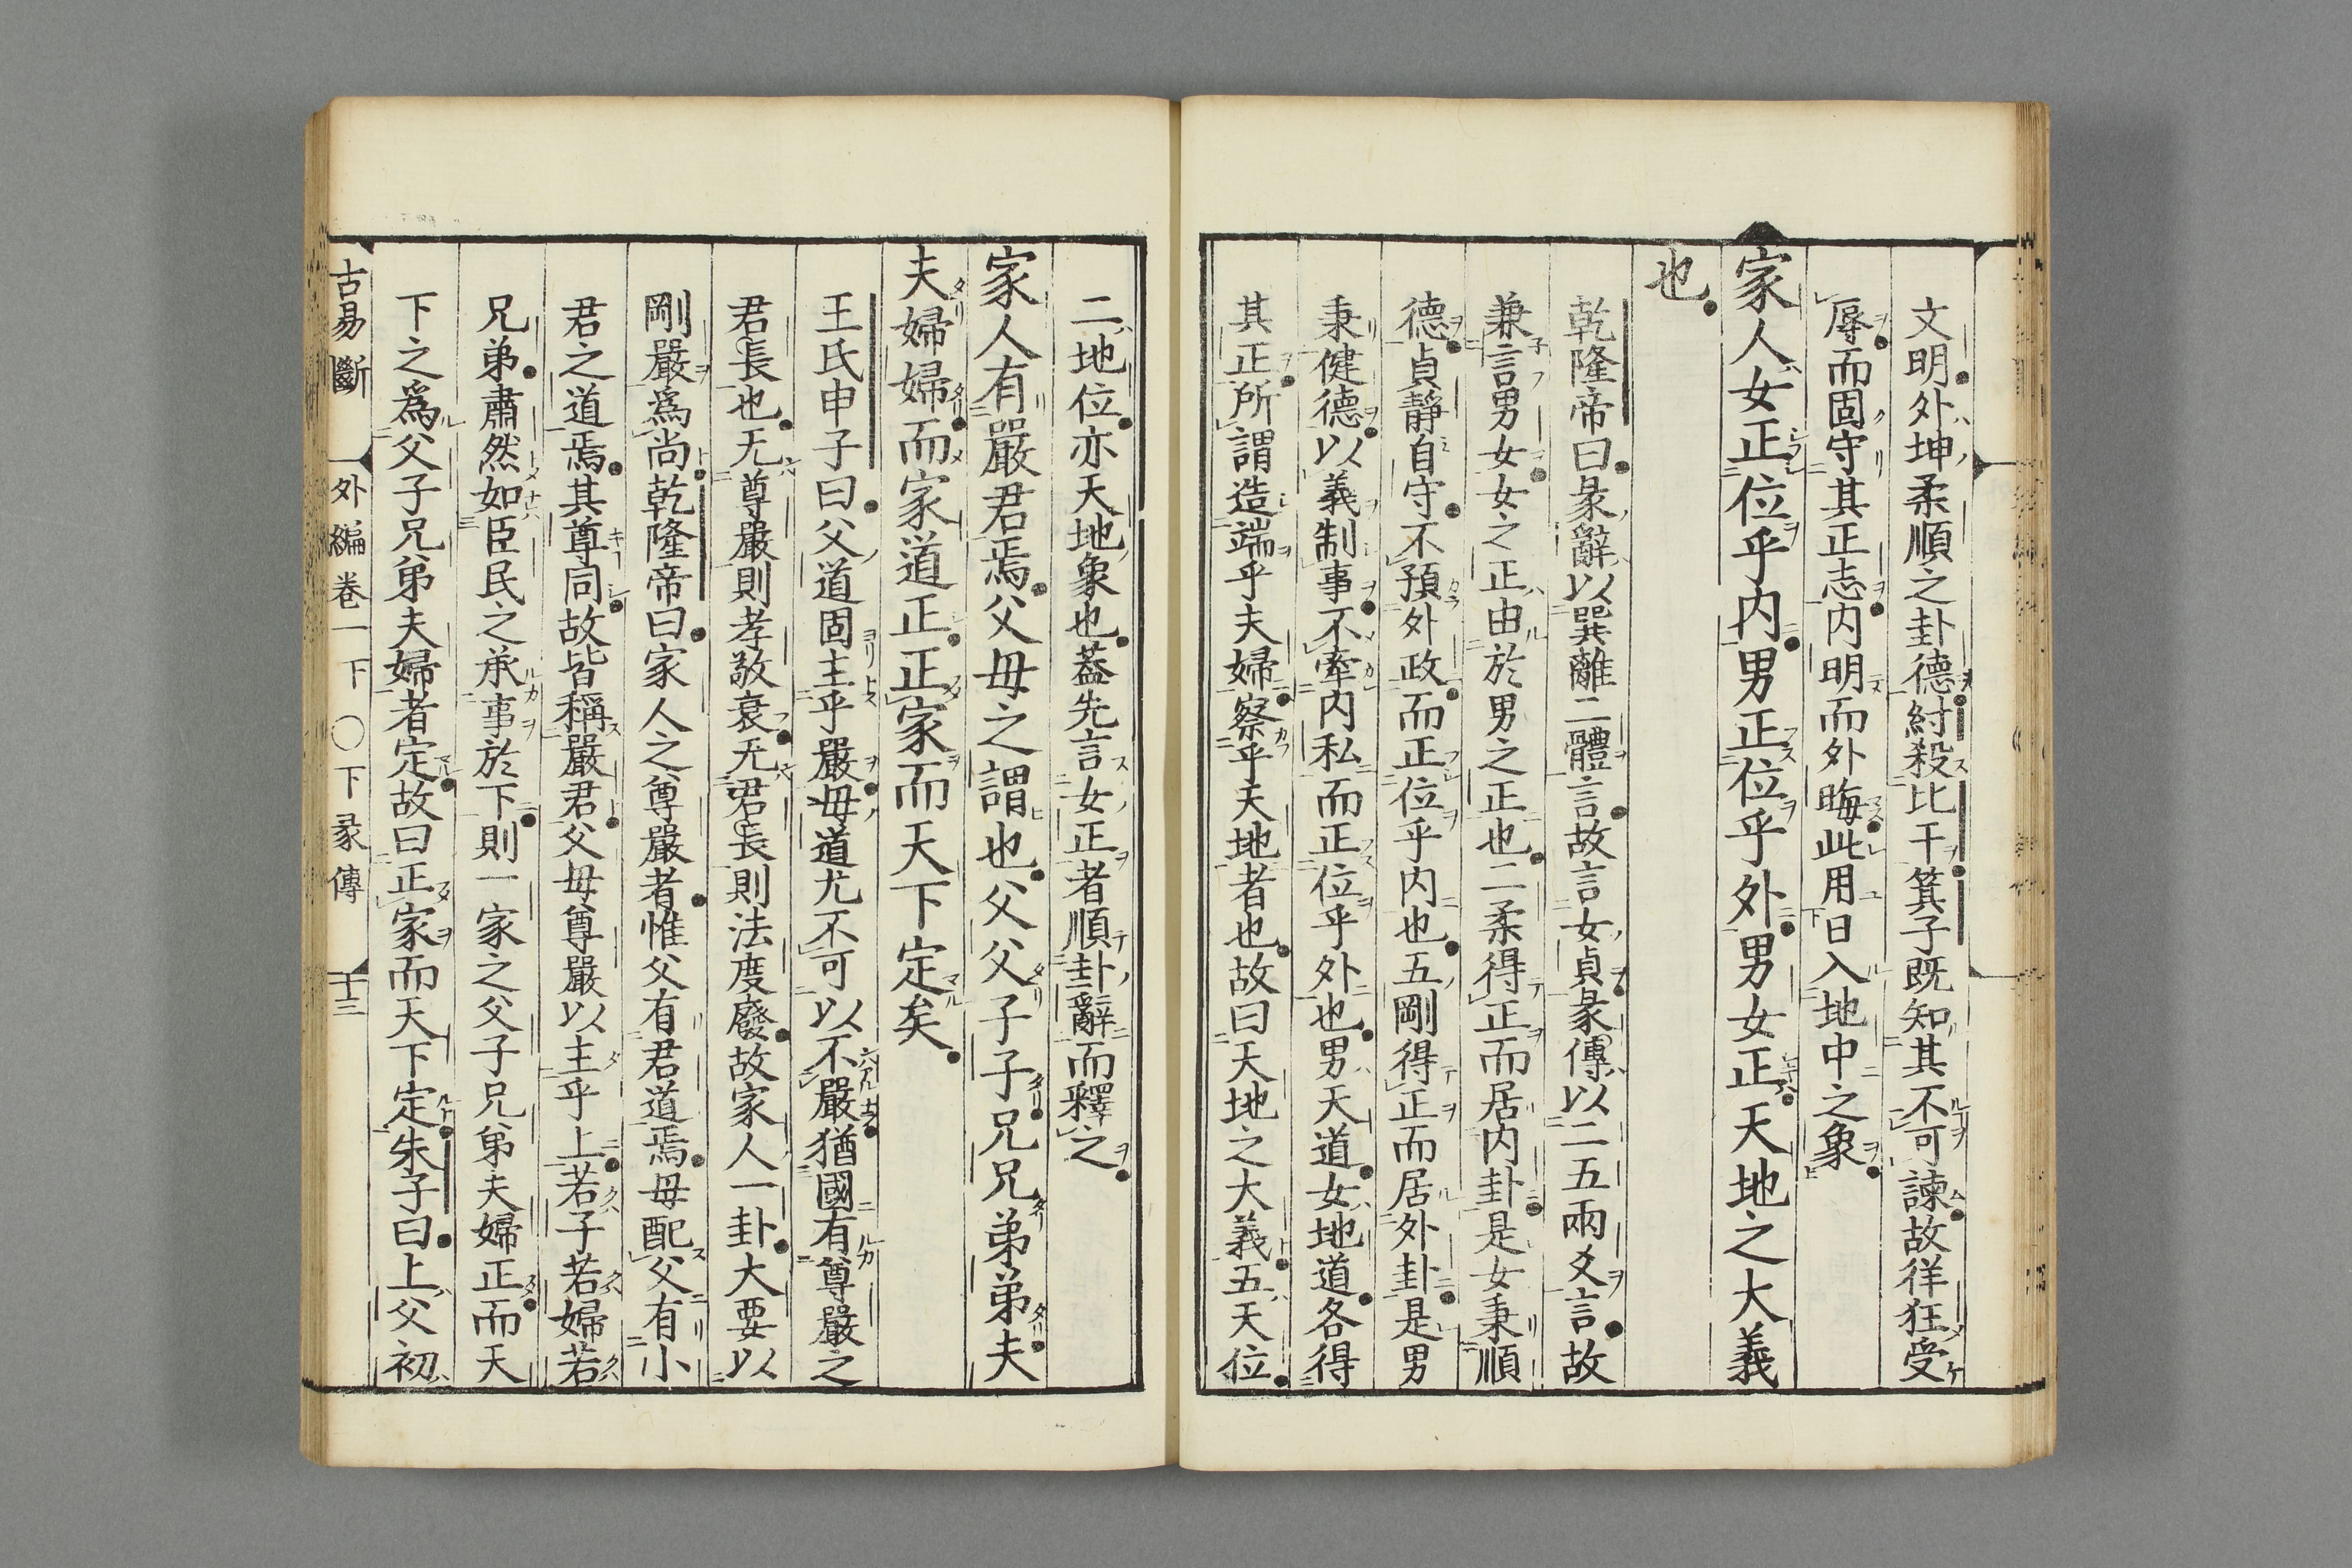 文明外坤柔順之卦德紂殺比干箕子既知其不可諫故徉狂受
辱而固守其正志内明而外晦此用日入地中之象
家人女正位乎内男正位乎外男女正天地之大義
也
乾隆帝曰彖辭以巽離二體言故言女貞彖傳以二五兩爻言故
兼言男女女之正由於男之正也二柔得正而居内卦是女秉順
德貞靜自守不預外政而正位乎内也五剛得正而居外卦是男
秉健德以義制事不牽内私而正位乎外也男天道女地道各得
其正所謂造端乎夫婦察乎天地者也故曰天地之大義五天位
二地位亦天地象也葢先言女正者順卦辭而釋之
家人有嚴君焉父母之謂也父父子子兄兄弟弟夫
夫婦婦而家道正正家而天下定矣
王氏申子曰父道固主乎嚴母道尤不可以不嚴猶國有尊嚴之
君長也无尊嚴則孝敬衰无君長則法度廢故家人一卦大要以
剛嚴爲尚乾隆帝曰家人之尊嚴者惟父有君道焉母配父有小
君之道焉其尊同故皆稱嚴君父母尊嚴以主乎上若子若婦若
兄弟肅然如臣民之承事於下則一家之父子兄弟夫婦正而天
下之爲父子兄弟夫婦者定故曰正家而天下定朱子曰上父初
古易斷 外編卷一下 ○下彖傳 十三